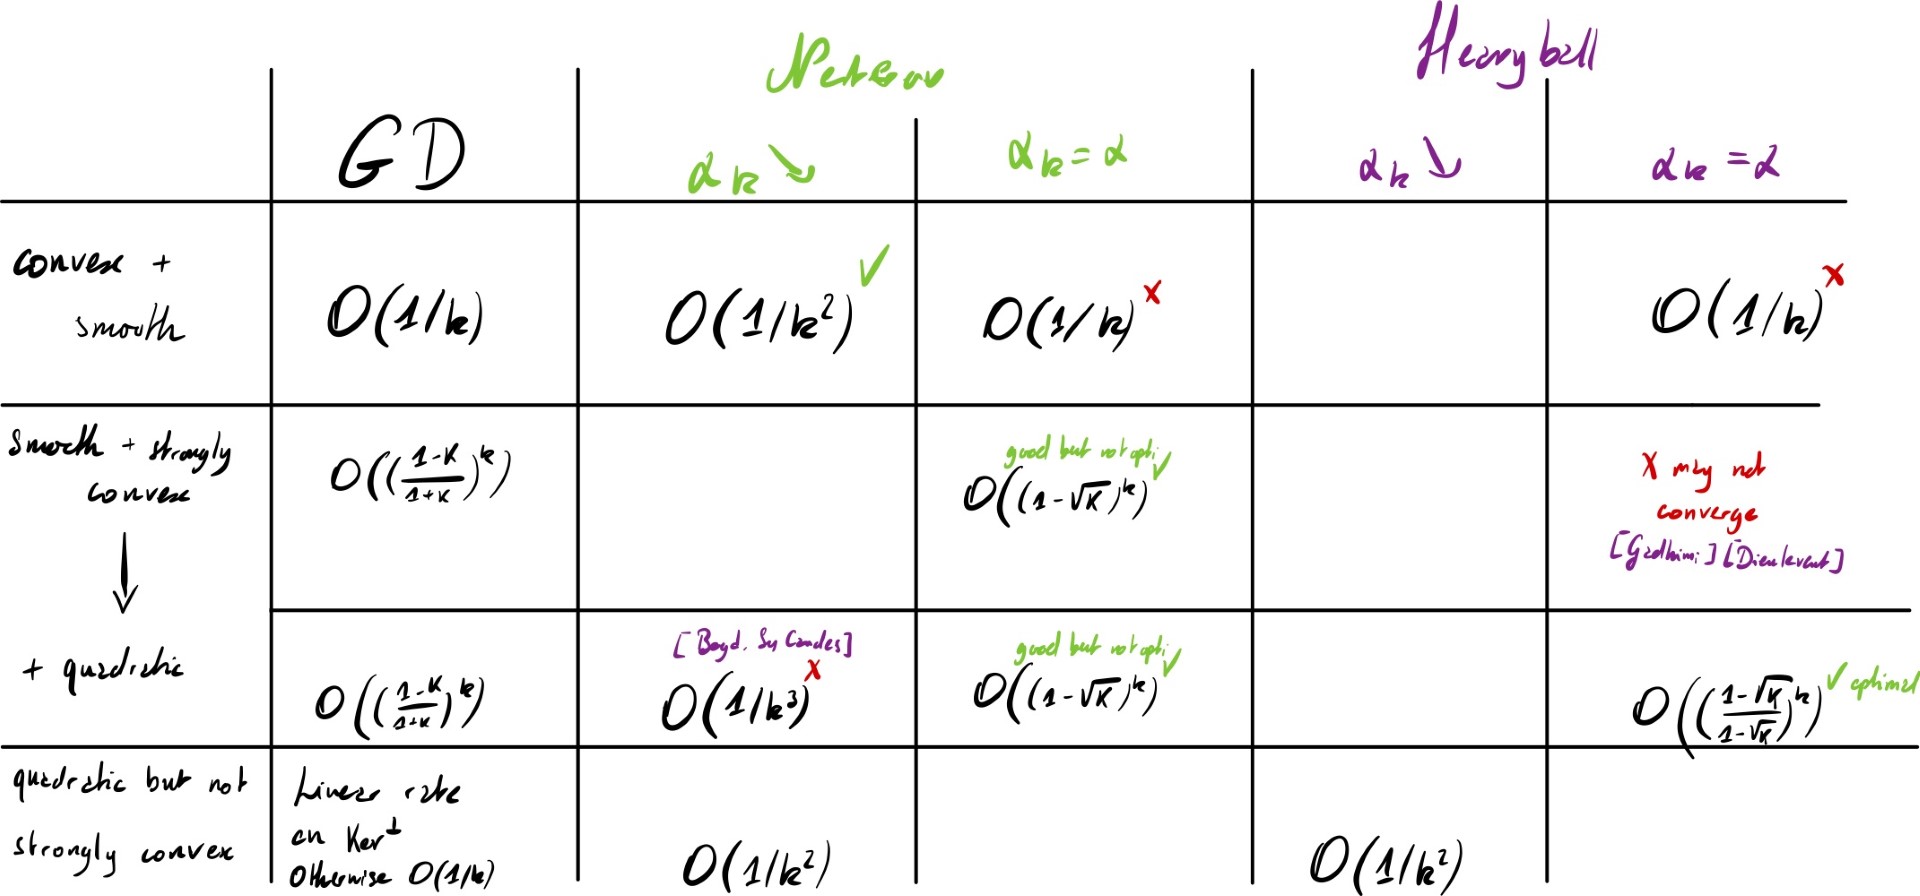 Nesterov
Heavy ball
GD
α_k ↘
α_k = α
α_k ↘
α_k = α
convex +
smooth
O(1/k)
O(1/k²) ✓
O(1/k) x
O(1/k) x
Smooth + strongly
convex
O((1-κ/1+κ)^k)
good but not opti ✓
O((1-√κ)^k)
X may not
converge
[Gadhimi] [Dieulevent]
+ quadratic
O((1-κ/1+κ)^k)
[Boyd, Su Candes]
O(1/k³) x
good but not opti ✓
O((1-√κ)^k)
O((1-√κ/1-√κ)^k) ✓ optimal
quadratic but not
strongly convex
Linear rate
on Ker⊥
Otherwise O(1/k)
O(1/k²)
O(1/k²)